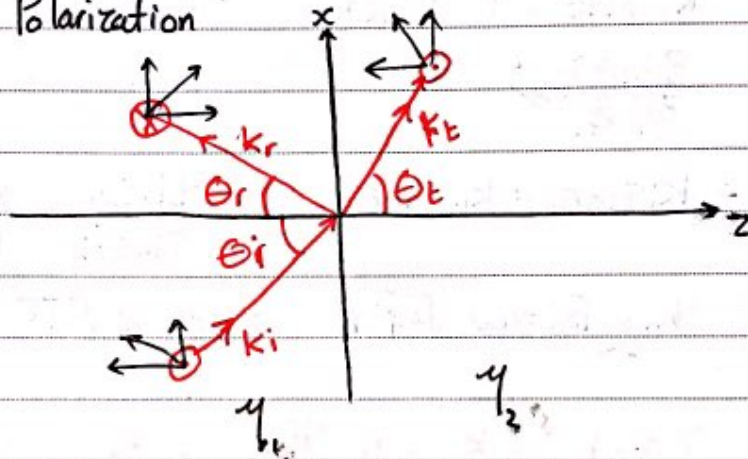 Polarization
x
kr
kt
θr
θt
z
θi
ki
η1
η2